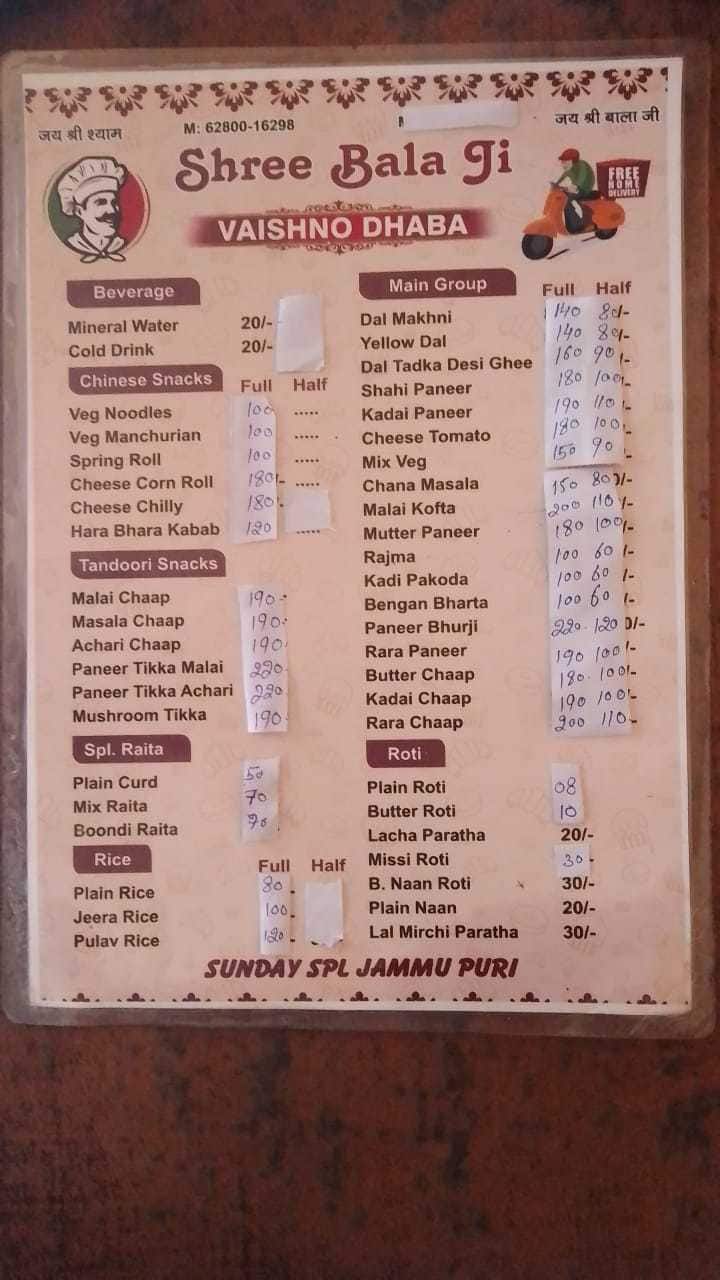 जय श्री श्याम
M: 62800-16298
जय श्री बाला जी
Shree Bala Ji
FREE
HOME
DELIVERY
VAISHNO DHABA
Beverage
Mineral Water 20/-
Cold Drink 20/-
Chinese Snacks Full Half
Veg Noodles 100 .....
Veg Manchurian 100 .....
Spring Roll 100 .....
Cheese Corn Roll 180/- .....
Cheese Chilly 180
Hara Bhara Kabab 120 .....
Tandoori Snacks
Malai Chaap 190
Masala Chaap 190
Achari Chaap 190
Paneer Tikka Malai 220
Paneer Tikka Achari 220
Mushroom Tikka 190
Spl. Raita
Plain Curd 50
Mix Raita 70
Boondi Raita
Rice Full Half
Plain Rice 80
Jeera Rice 100
Pulav Rice 120
Main Group Full Half
Dal Makhni 140 80/-
Yellow Dal 140 80/-
Dal Tadka Desi Ghee 160 90/-
Shahi Paneer 180 100/-
Kadai Paneer 190 110/-
Cheese Tomato 180 100/-
Mix Veg 150 90
Chana Masala 150 80/-
Malai Kofta 200 110/-
Mutter Paneer 180 100/-
Rajma 100 60/-
Kadi Pakoda 100 60/-
Bengan Bharta 100 60/-
Paneer Bhurji 220 120/-
Rara Paneer 190 100/-
Butter Chaap 180 100/-
Kadai Chaap 190 100/-
Rara Chaap 200 110
Roti
Plain Roti 08
Butter Roti 10
Lacha Paratha 20/-
Missi Roti 30
B. Naan Roti 30/-
Plain Naan 20/-
Lal Mirchi Paratha 30/-
SUNDAY SPL JAMMU PURI